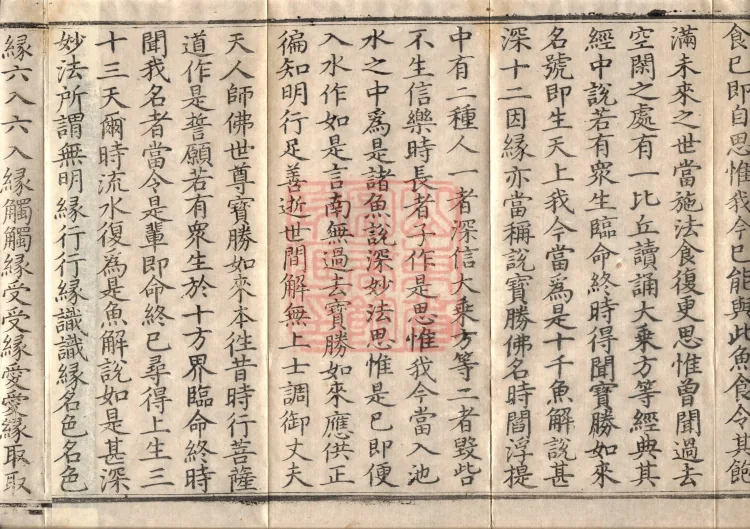 食已即自思惟我今已能與此魚食令其飽
滿未來之世當施法食復更思惟曾聞過去
空閑之處有一比丘讀誦大乘方等經典其
經中說若有衆生臨命終時得聞寶勝如來
名號即生天上我今當為是十千魚解說甚
深十二因緣亦當稱說寶勝佛名時閻浮提
中有二種人一者深信大乘方等二者毀呰
不生信樂時長者子作是思惟我今當入池
水之中爲是諸魚說深妙法思惟是已即便
入水作如是言南無過去寶勝如來應供正
徧知明行足善逝世間解無上士調御丈夫
天人師佛世尊寶勝如來本徃昔時行菩薩
道作是誓願若有衆生於十方界臨命終時
聞我名者當令是輩即命終已尋得上生三
十三天爾時流水復為是魚解說如是甚深
妙法所謂無明緣行行緣識識緣名色名色
緣六入六入緣觸觸緣受受緣愛愛緣取取